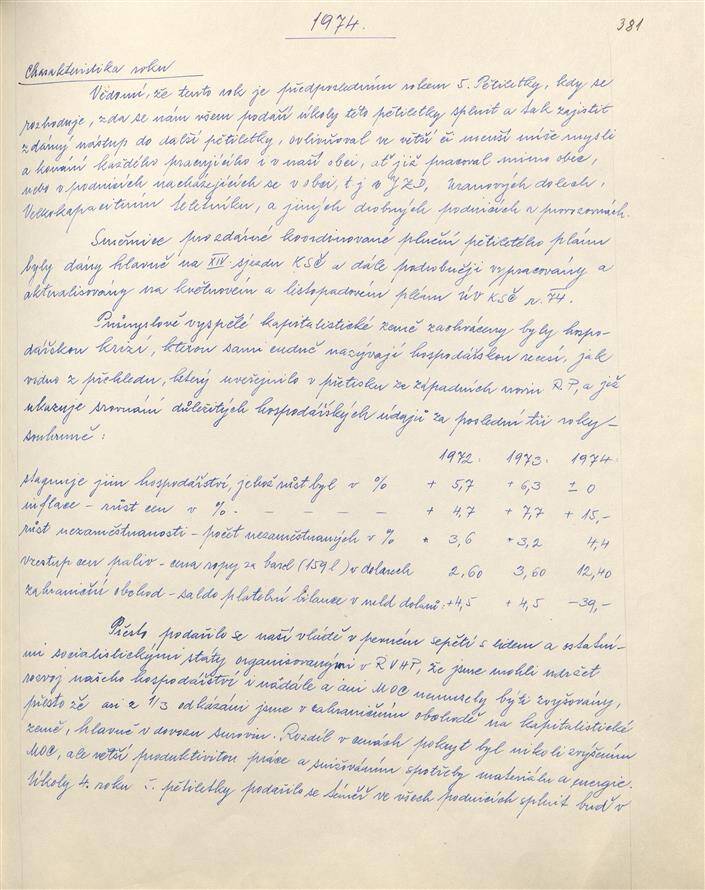 1974.
381
Charakteristika roku
Vědomí, že tento rok je předposledním rokem 5. Pětiletky, kdy se
rozhoduje, zda se nám všem podaří úkoly této pětiletky splnit a tak zajistit
zdárný nástup do další pětiletky, ovlivňoval ve větší či menší míře mysli
a konání každého pracujícího i v naší obci, ať již pracoval mimo obec,
nebo v podnicích nacházejících se v obci, t.j. v JZD, Uranových dolech,
Velkokapacitním teletníku, a jiných drobných podnicích a provozovnách.
Směrnice pro zdárné koordinované plnění pětiletého plánu
byly dány hlavně na XIV sjezdu KSČ a dále podrobněji vypracovány a
aktualisovány na květnovém a listopadovém plénu ÚV KSČ r. 74.
Průmyslově vyspělé kapitalistické země zachváceny byly hospo-
dářskou krizí, kterou sami cudně nazývají hospodářskou recesí, jak
vidno z přehledu, který uveřejnilo v přetisku ze západních novin R.P, a jež
ukazuje srovnání důležitých hospodářských údajů za poslední tři roky -
souhrnně:
1972: 1973: 1974:
stagnuje jim hospodářství, jehož růst byl v % + 5,7 + 6,3 ± 0
inflace - růst cen v % - - - - - + 4,7 + 7,7 + 15,-
růst nezaměstnanosti - počet nezaměstnaných v % + 3,6 + 3,2 4,4
vzestup cen paliv - cena ropy za barel (159 l) v dolarech 2,60 3,60 12,40
zahraniční obchod - saldo platební bilance v mld dolarů: +4,5 + 4,5 -39,-
Přesto podařilo se naší vládě v pevném sepětí s lidem a ostatní-
mi socialistickými státy organisovanými v RVHP, že jsme mohli udržet
rozvoj našeho hospodářství i nadále a ani MOC nemusely býti zvyšovány,
přesto že asi z 1/3 odkázáni jsme v zahraničním obchodě na kapitalistické
země, hlavně v dovozu surovin. Rozdíl v cenách pokryt byl nikoli zvýšením
MOC, ale větší produktivitou práce a snižováním spotřeby materiálu a energie.
Úkoly 4. roku 5. pětiletky podařilo se téměř ve všech podnicích splnit buď v